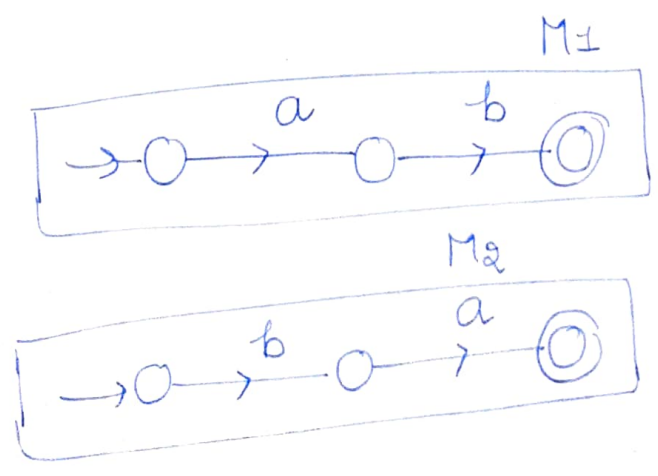 M1
a b
M2
b a